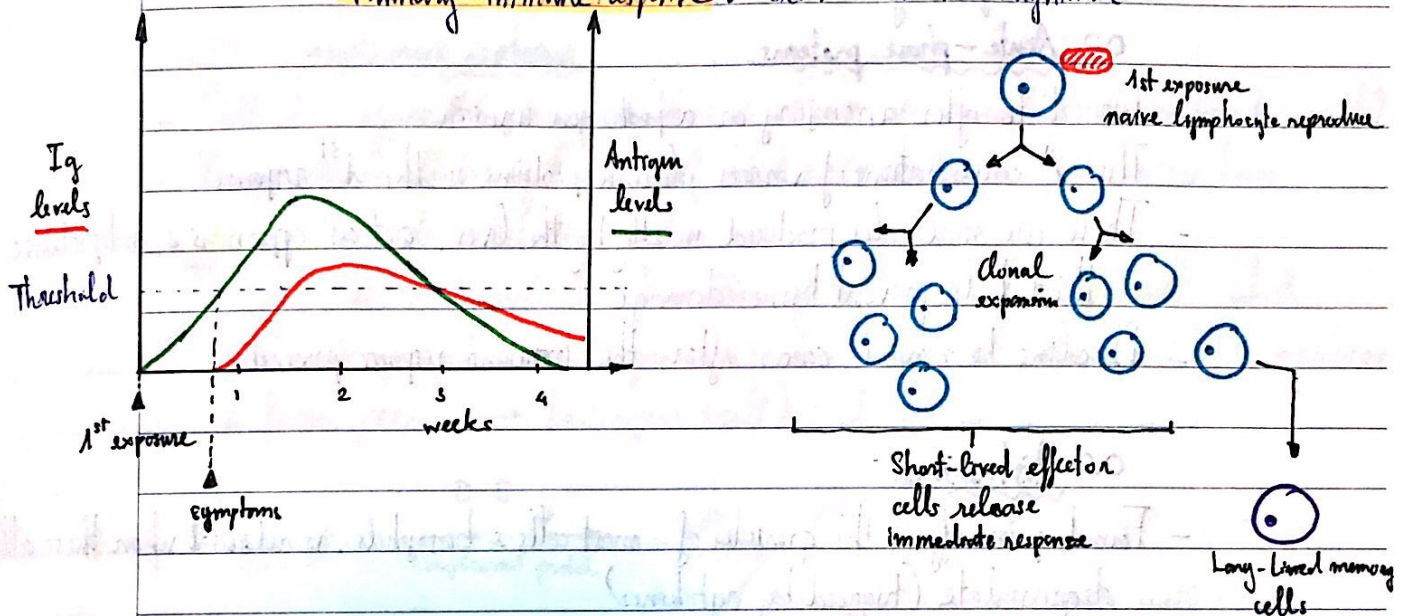 Primary immune response
Ig
levels
Threshold
Antigen
levels
1 2 3 4
weeks
1st exposure
symptoms
1st exposure
naive lymphocyte reproduce
Clonal
expansion
Short-lived effector
cells release
immediate response
Long-lived memory
cells